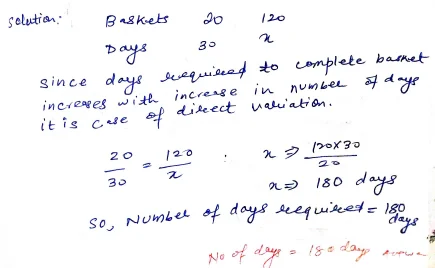 Solution: Baskets 20 120
Days 30 x
Since days required to complete basket
increases with increase in number of days
it is case of direct variation.
20/30 = 120/x : x ⇒ 120×30/20
x ⇒ 180 days
So, Number of days required = 180 days
No of days = 180 days